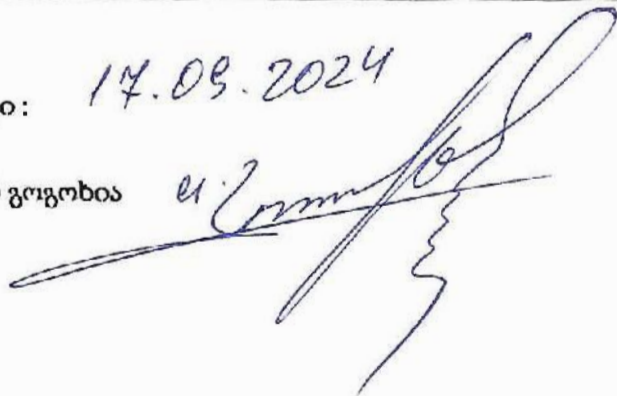 ი: 17.09.2024
გოგოხია